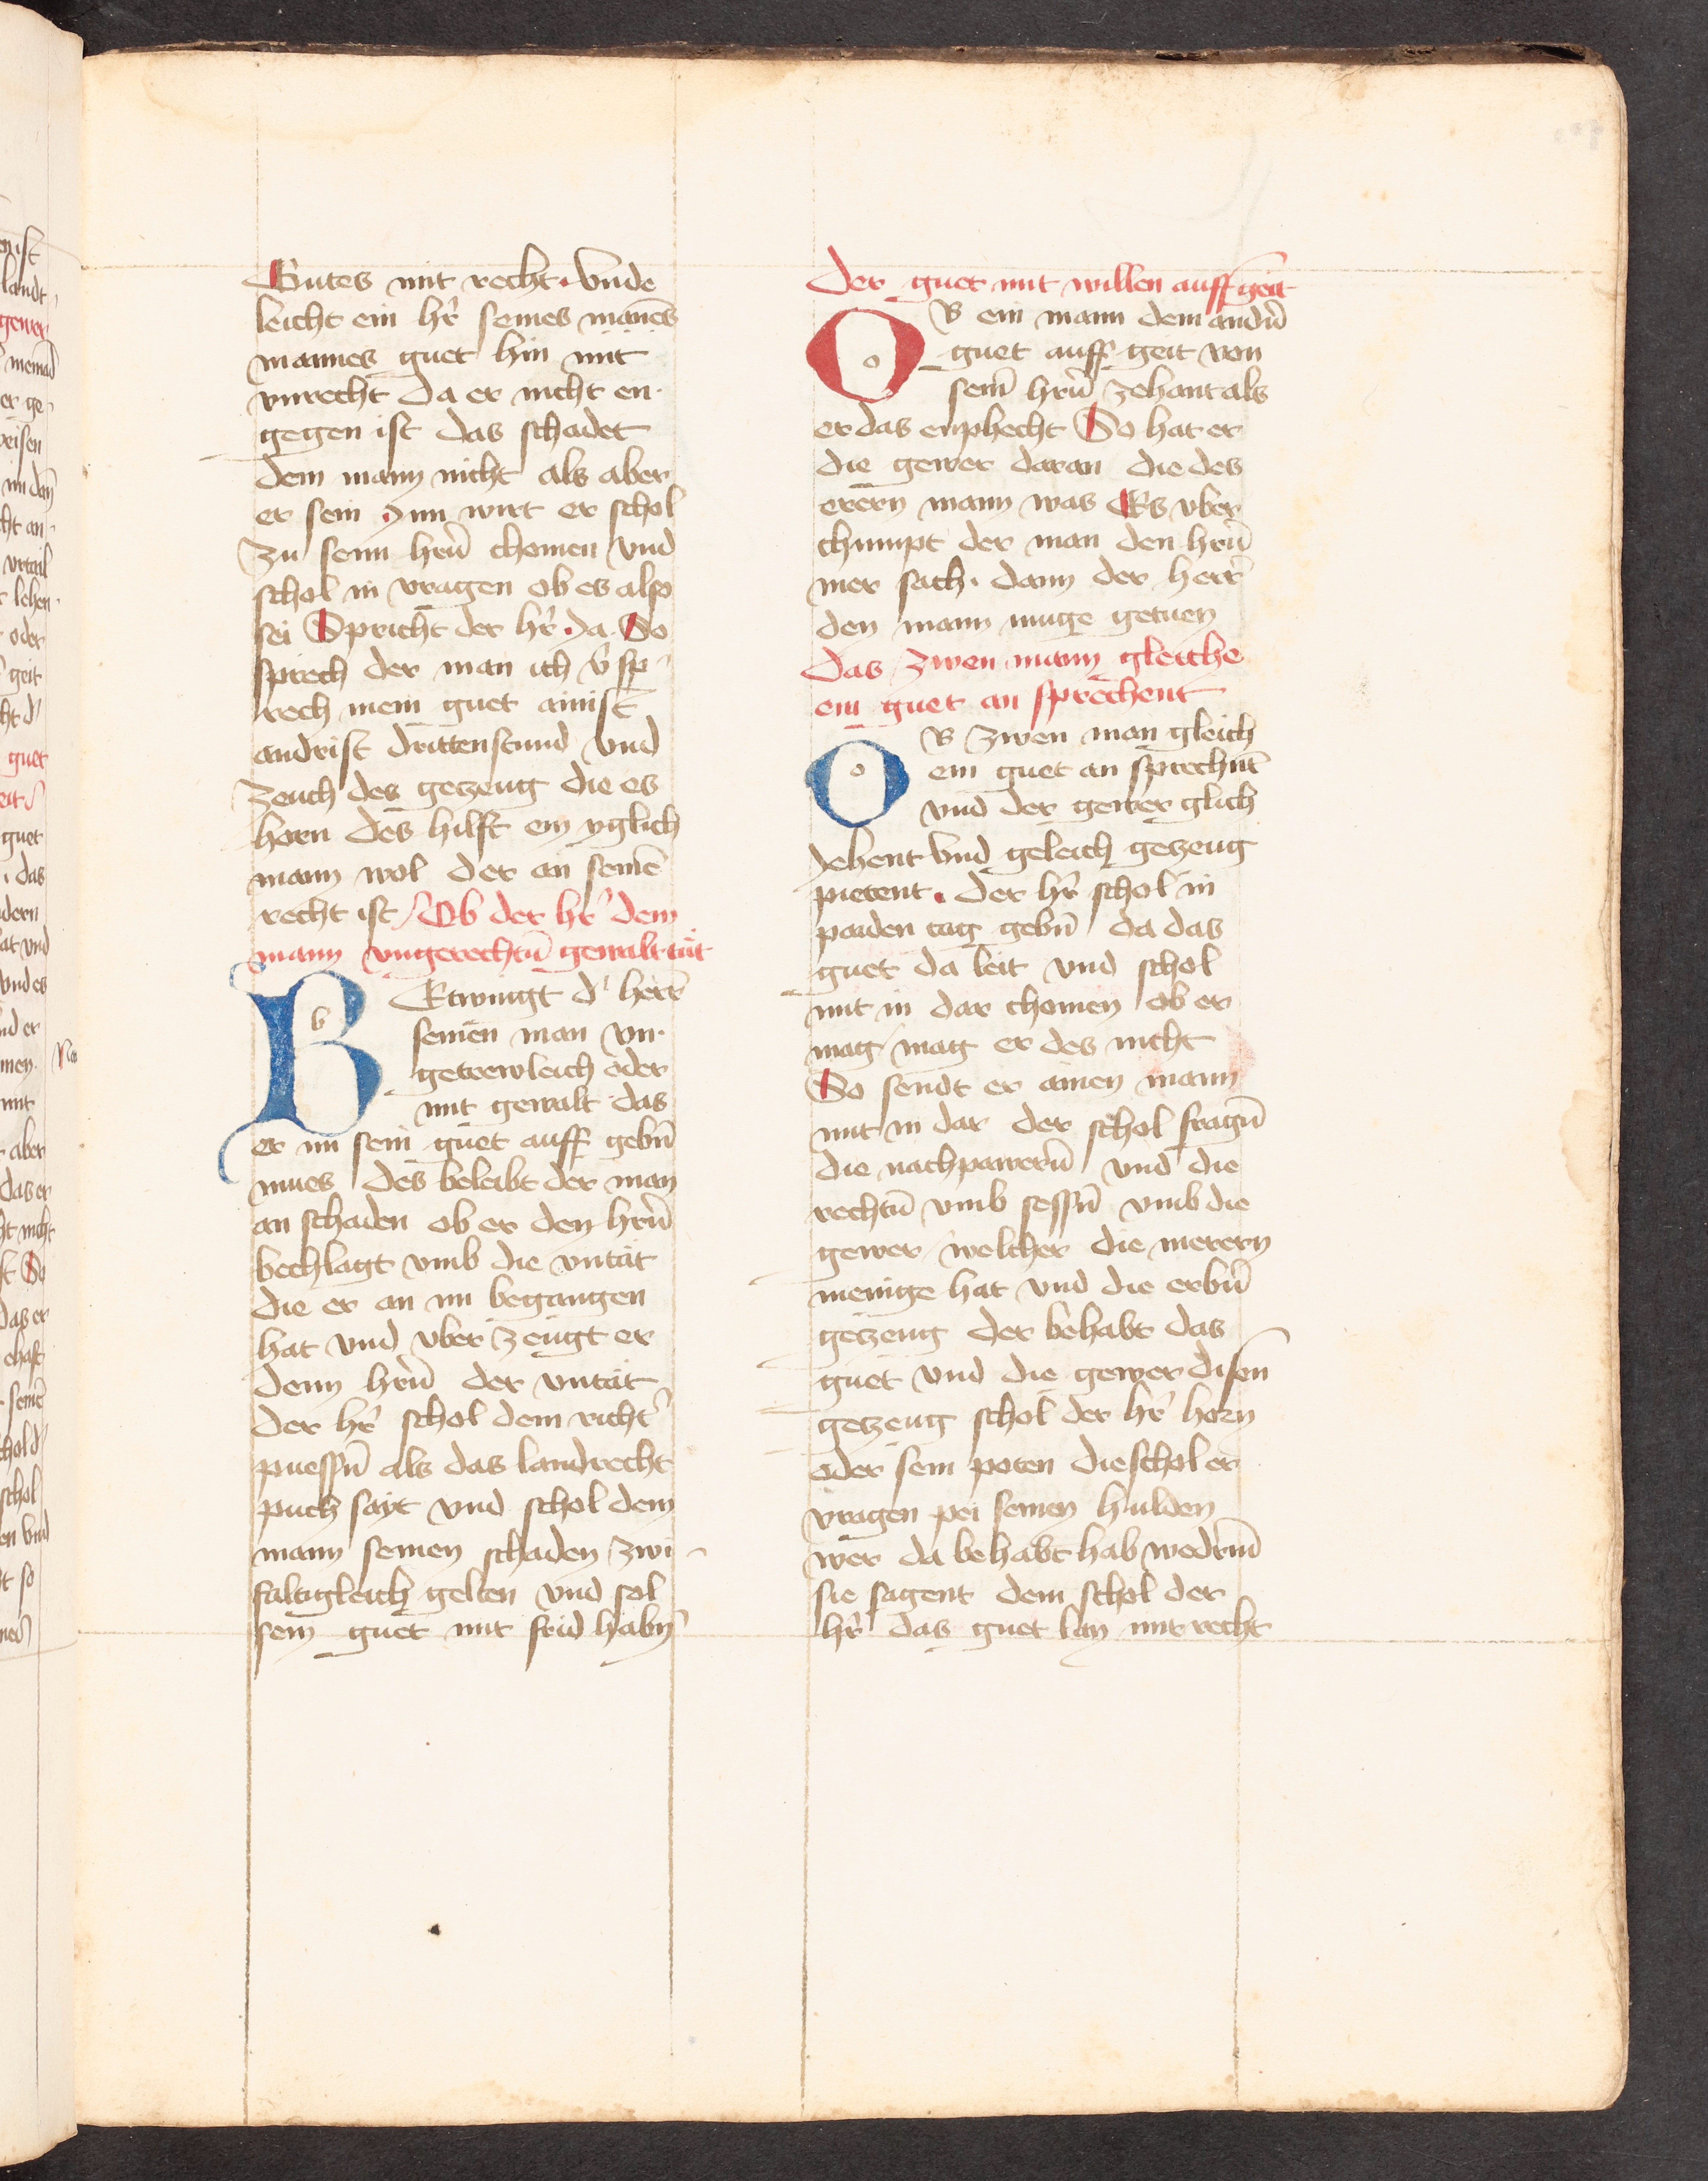 Gutes mit recht. Vnde
leicht ein hr̄ seines mānes
mannes guet hin mit
vnrecht da er nicht en
gegen ist das schadet
dem mann nicht als aber
er sein Inn wirt er schol
zu seim hrn̄ chomen vnd
schol in vragen ob es also
sei Spricht der hr̄ Ja So
sprech der man ich v̄ sp
rech mein guet ainist
andrist drittenstund vnd
zeuch des getzeug die es
horn des hilft ein yglich
mann wol der an seinē
recht ist Ob der hr̄ dem
mann vngerechtn̄ gewalt tüt
BEtwingt d' herr̄
seinen man vn
getrewleich oder
mit gewalt das
er im sein guet auff gebn̄
mues des beleibt der man
an schaden ob er den hrn̄
bechlagt vmb die vntät
die er an im begangen
hat vnd vber zeugt er
denn hrn̄ der vntät
der hr̄ schol dem richt̄
puessn̄ als das landrecht
puch sayt vnd schol dem
mann seinen schaden zwi
faltigleich gelten vnd sol
sein guet mit frid habn̄
der guet mit willen auff geit
OB ein mann dem andn̄
guet auff geit von
seim̄ hrn̄ zehant als
er das enphecht So hat er
die gewer daran die des
erern mann was Es vber
chumpt der man den hrn̄
mer sach. dann der herr̄
den mann muge getuen
das zwen mann gleiche
ein guet an sprechent
OB zwen man gleich
ein guet an sprechnt̄
vnd der gewer glich
Jehent vnd geleich getzeug
pietent. der hr̄ schol in
paiden tag gebn̄ da das
guet da leit vnd schol
mit in dar chomen ob er
mag mag er des nicht
So sendt er ainen mann
mit in dar der schol fragn̄
die nachpawern̄ vnd die
rechtn̄ vmb sessn̄ vmb die
gewer welcher die merern
menige hat vnd die erbn̄
getzeug der behabt das
guet vnd die gewer disen̄
getzeug schol der hr̄ horn
oder sein poten die schol er
vragen pei seinen hulden
wer da behabt hab wedrm̄
sie sagent dem schol der
hr̄ das guet lan mit recht